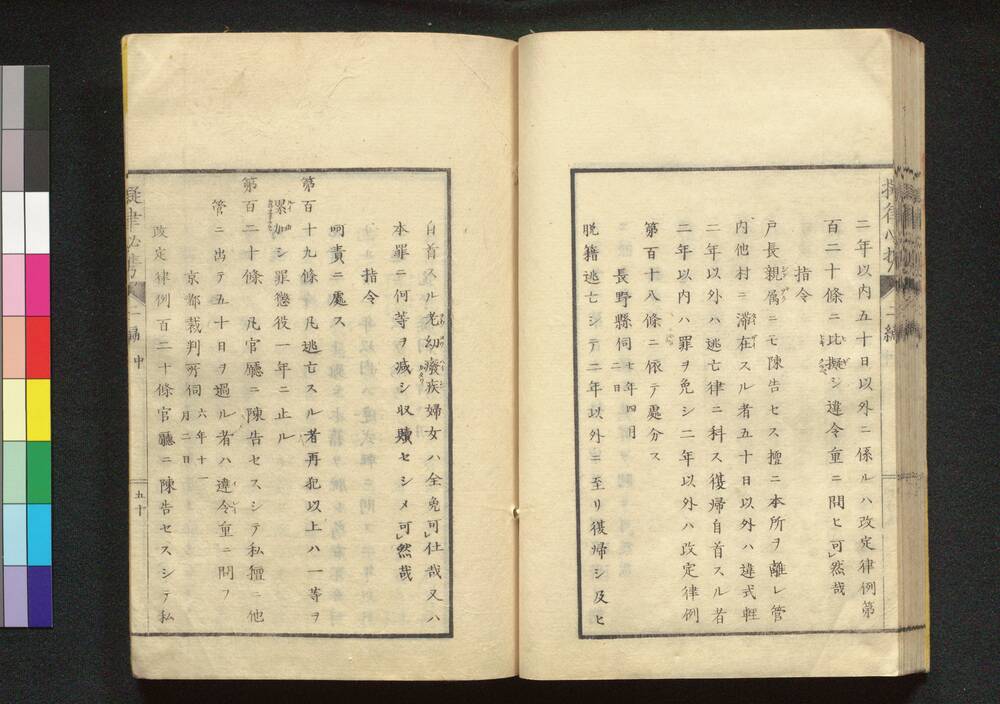 二年以内五十日以外ニ係ルハ改定律例第
百二十條ニ比擬シ違令重ニ問ヒ可然哉
指令
戸長親属ニモ陳告セス擅ニ本所ヲ離レ管
内他村ニ滞在スル者五十日以外ハ違式輕
二年以外ハ逃亡律ニ科ス復帰自首スル者
二年以内ハ罪ヲ免シ二年以外ハ改定律例
第百十八條ニ依テ處分ス
長野縣伺 七年四月二日
脱籍逃亡シテ二年以外ニ至リ復帰シ及ヒ
自首スル老幼癈疾婦女ハ全免可仕哉又ハ
本罪ニ何等ヲ減シ収贖セシメ可然哉
指令
呵責ニ處ス
第百十九條 凡逃亡スル者再犯以上ハ一等ヲ
累加シ罪懲役一年ニ止ル
第百二十條 凡官廳ニ陳告セスシテ私擅ニ他
管ニ出テ五十日ヲ過ル者ハ違令重ニ問フ
京都裁判所伺 六年十一月二日
改定律例百二十條官廳ニ陳告セスシテ私
擬律必携 二編 中
五十